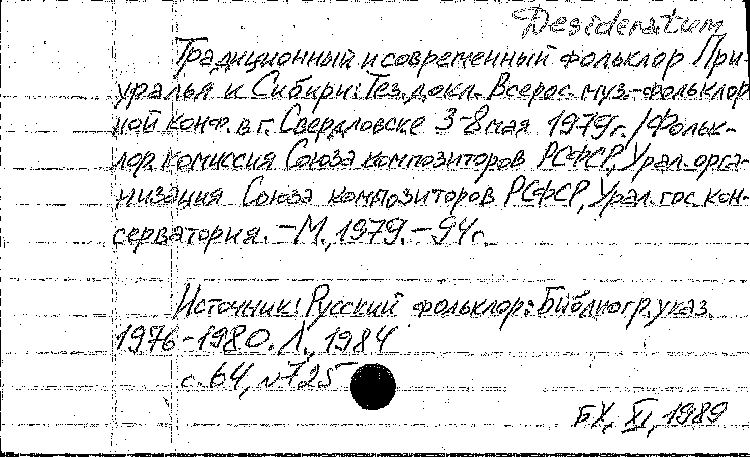 Desideratum
Традиционный и современный фольклор При-
уралья и Сибири: Тез. докл. Всерос. муз.-фольклор
ной конф. в г. Свердловске 3-8 мая 1979г. / Фольк-
лор. комиссия Союза композиторов РСФСР, Урал. орга-
низация Союза композиторов РСФСР, Урал. гос. кон-
серватория. – М., 1979. – 94с.
Источник: Русский фольклор: Библиогр. указ.
1976-1980. Л., 1984
с. 64, №725
БХ, XI, 1989